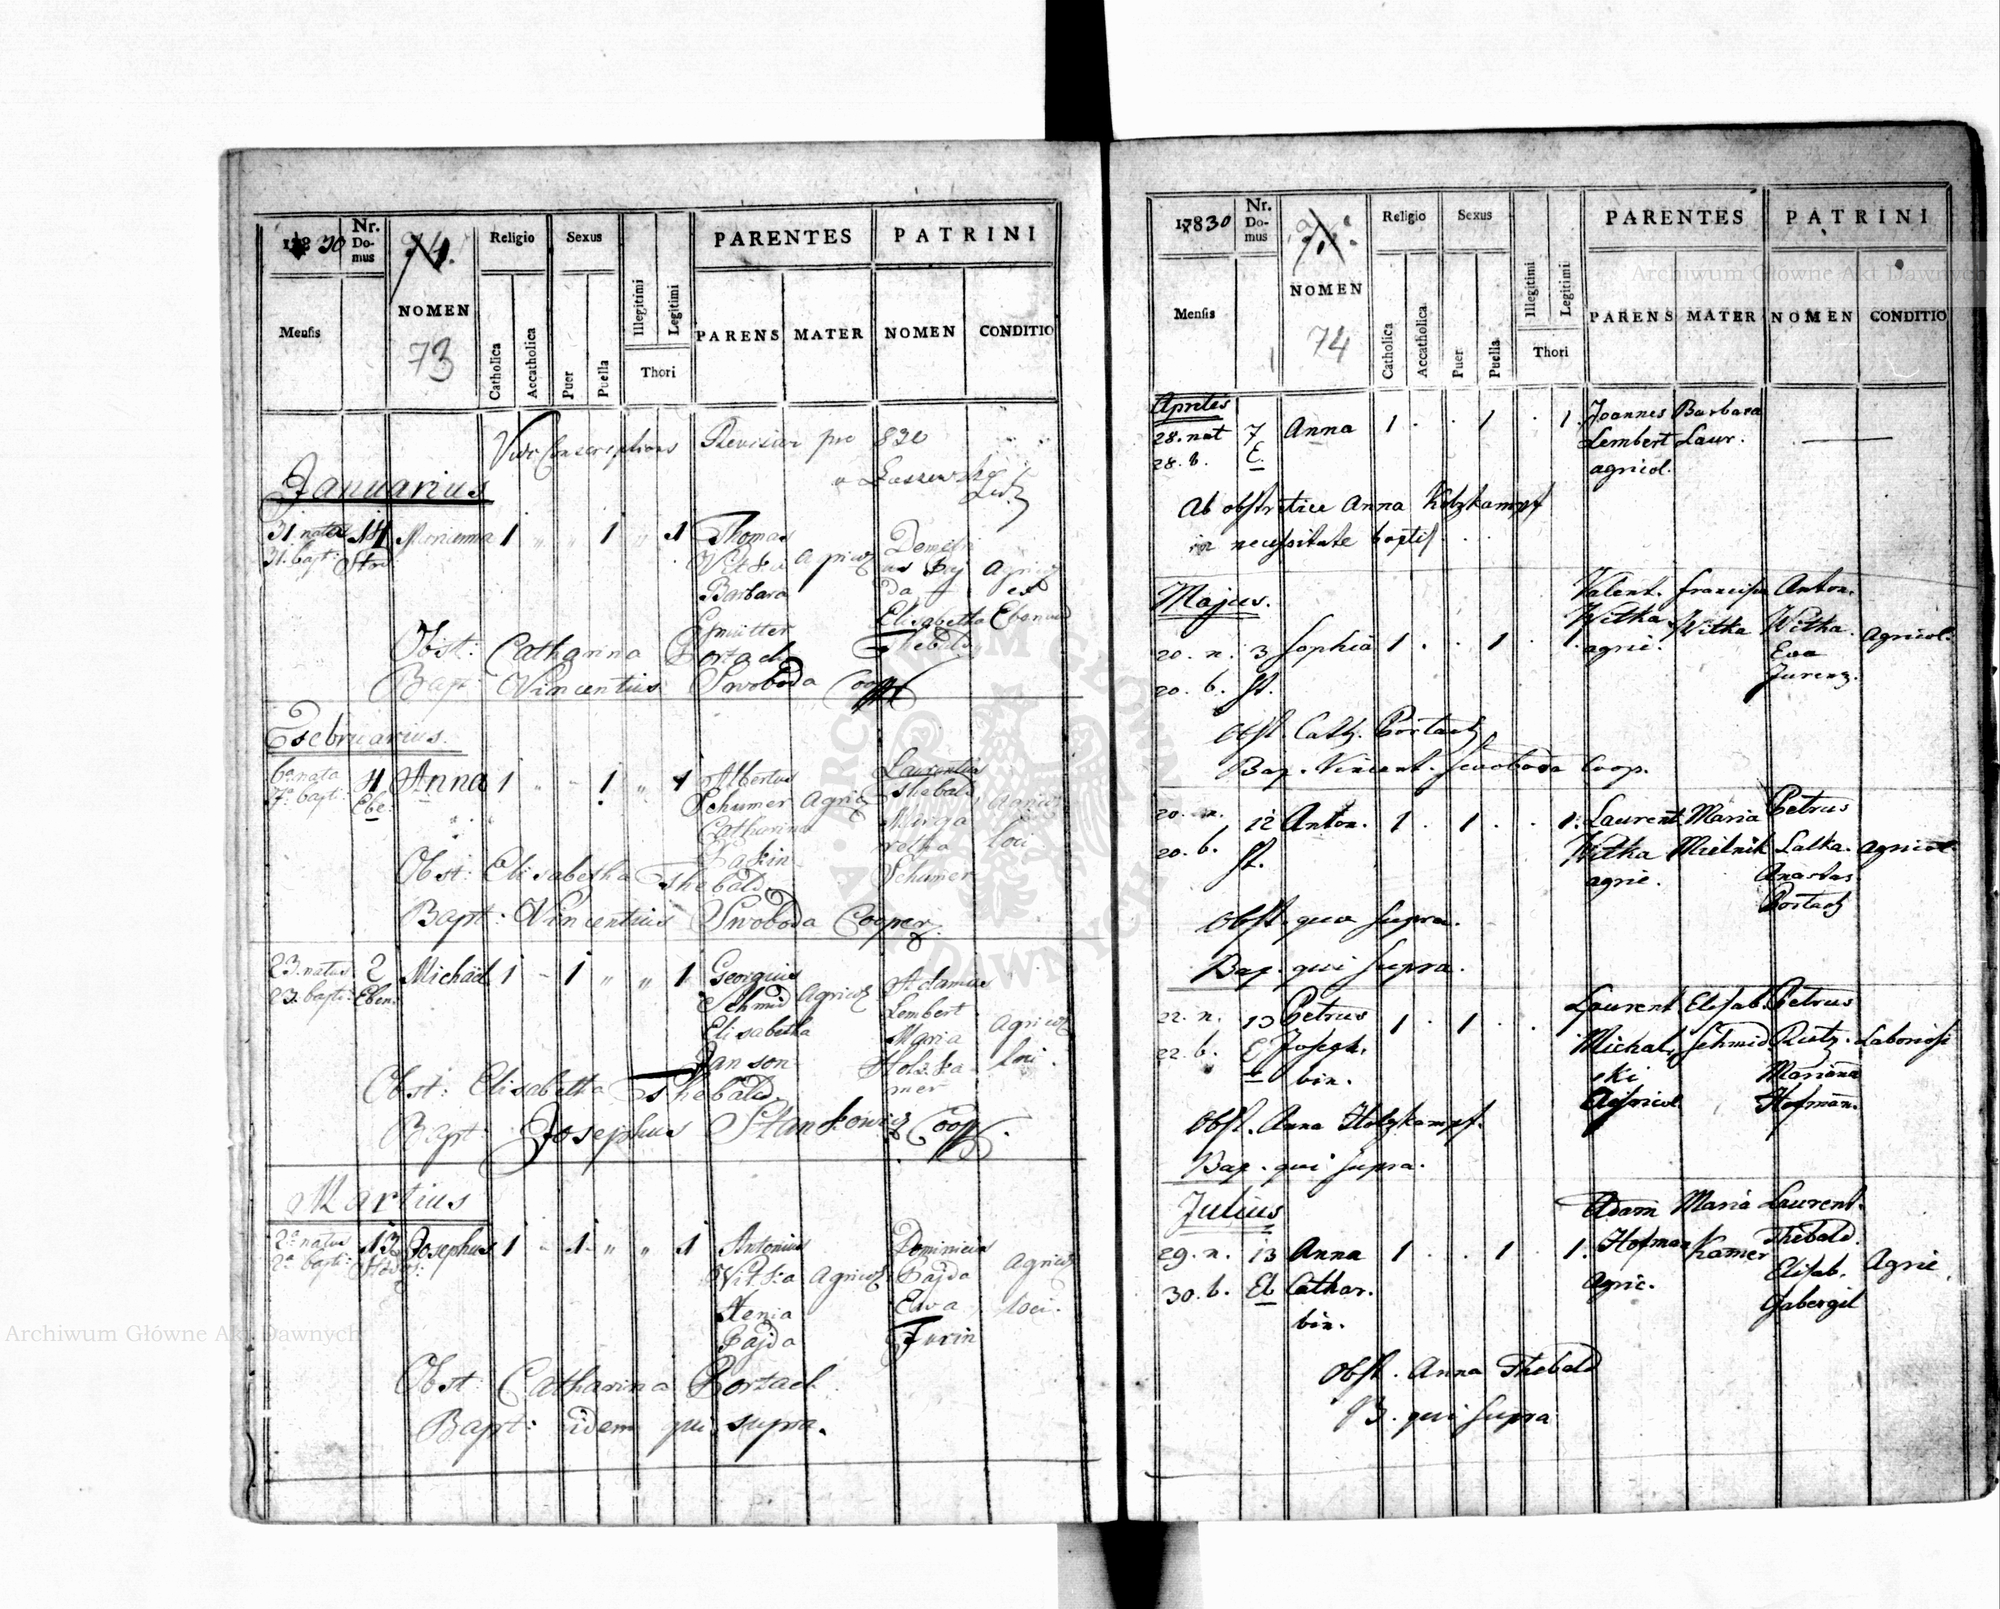 1830
Nr. Domus
74.
NOMEN
73
Religio
Sexus
PARENTES
PATRINI
Mensis
Catholica
Accatholica
Puer
Puella
Illegitimi
Legitimi
Thori
PARENS
MATER
NOMEN
CONDITIO
Revision pro 830
Januarius
31. nata 14 Marianna 1 " " 1 " 1 Thomas
31. bapt:
Witka Agricol
Barbara
Elisabetha
Obst: Catharina Portach Thebald
Bapt: Vincentius Swoboda Coop
Februarius.
6a nata 4 Anna 1 " - 1 " 1 Albertus Laurentius
7a bapt: Ebe: Schumer Agricol Thebald Agricol
Catharina
loci
Schumer
Obst: Elisabetha Thebald
Bapt: Vincentius Swoboda Cooper.
23. natus 2 Michäel 1 - 1 " " 1 Georgius Adamus
23. bapt: Eben. Schmid Agricol Lembert
Elisabetha Maria Agricol
Janson loci.
mer
Obst: Elisabetha Thebald
Bapt: Josephus Stankowicz Coop.
Martius
2a natus 13 Josephus 1 - 1 " " 1 Antonius Dominicus
2a bapt: Witka Agricol Bajda Agricol
Ewa loci.
Bajda Jurin
Obst: Catharina Portach
Bapt: idem qui supra.
1830
Nr. Domus
NOMEN
74
Religio
Sexus
PARENTES
PATRINI
Mensis
Catholica
Accatholica
Puer
Puella
Illegitimi
Legitimi
Thori
PARENS
MATER
NOMEN
CONDITIO
Apreles
28. nat 7 Anna 1 . . 1 . 1. Joannes Barbara
28. b. E. Lembert Laur.
agricol.
Ab obstretice Anna Holzkampf
in necessitate baptis.
Majus.
Valent. Francisca Anton.
20. n. 3 Sophia 1 . . 1 . 1. Witka Witka Witka. Agricol.
agric. Eva
20. b. St. Jurenz.
Obst. Cath. Portach
Bap. Vincent. Swoboda Coop.
20. n. 12 Anton. 1 . 1 . . 1. Laurent. Maria Petrus
20. b. St. Witka Mielnik Lalka. agricol.
agric. Anastas
Portach
Obst. quae supra.
Bap. qui supra.
22. n. 13 Petrus 1 . 1 . . Laurent Elisab. Petrus
22. b. E Joseph. Michal Schmid Laboriosi
bin. ski Mariana
Agricol. Hofman.
Obst. Anna Holzkampf.
Bap. qui supra.
Julius
Adam Maria Laurent.
29. n. 13 Anna 1 . . 1 . 1. Hofman Kamer Thebald.
30. b. Eb Cathar. Agric. Elisab. Agric.
bin. Gabergil
Obst. Anna Thebald
B. qui supra
Archiwum Główne Akt Dawnych
Archiwum Główne Akt Dawnych
ARCHIWUM GŁÓWNE AKT DAWNYCH